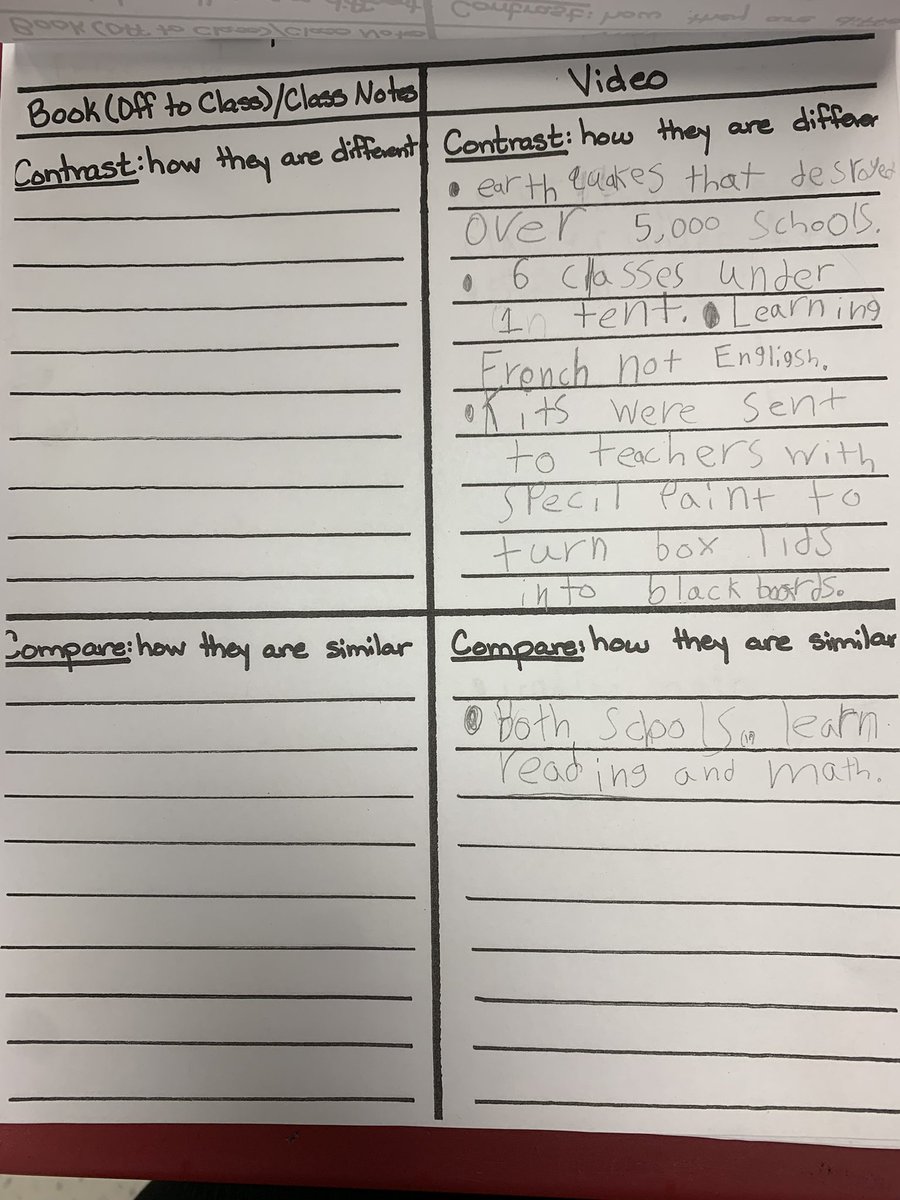 Book (Off to Class)/Class Notes
Contrast: how they are different
Compare: how they are similar
Video
Contrast: how they are differen
• earth quakes that desroyed
over 5,000 schools.
• 6 classes under
1 tent. • Learning
French not Engligsh.
• Kits were sent
to teachers with
specil Paint to
turn box lids
into black boards.
Compare: how they are similar
• Both scpools learn
reading and math.